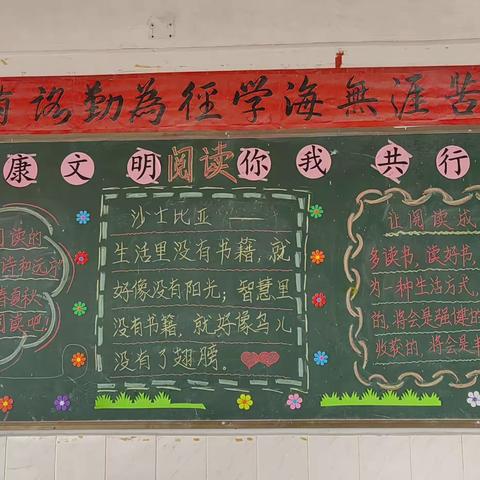 路勤為徑學海無涯苦
康文明阅读你我共行
阅读的
诗和远方
春夏秋
阅读吧
沙士比亚——
生活里没有书籍，就
好像没有阳光；智慧里
没有书籍，就好像鸟儿
没有了翅膀。
让阅读成
多读书，读好书，
为一种生活方式，
的，将会是强博的
收获的，将会是丰